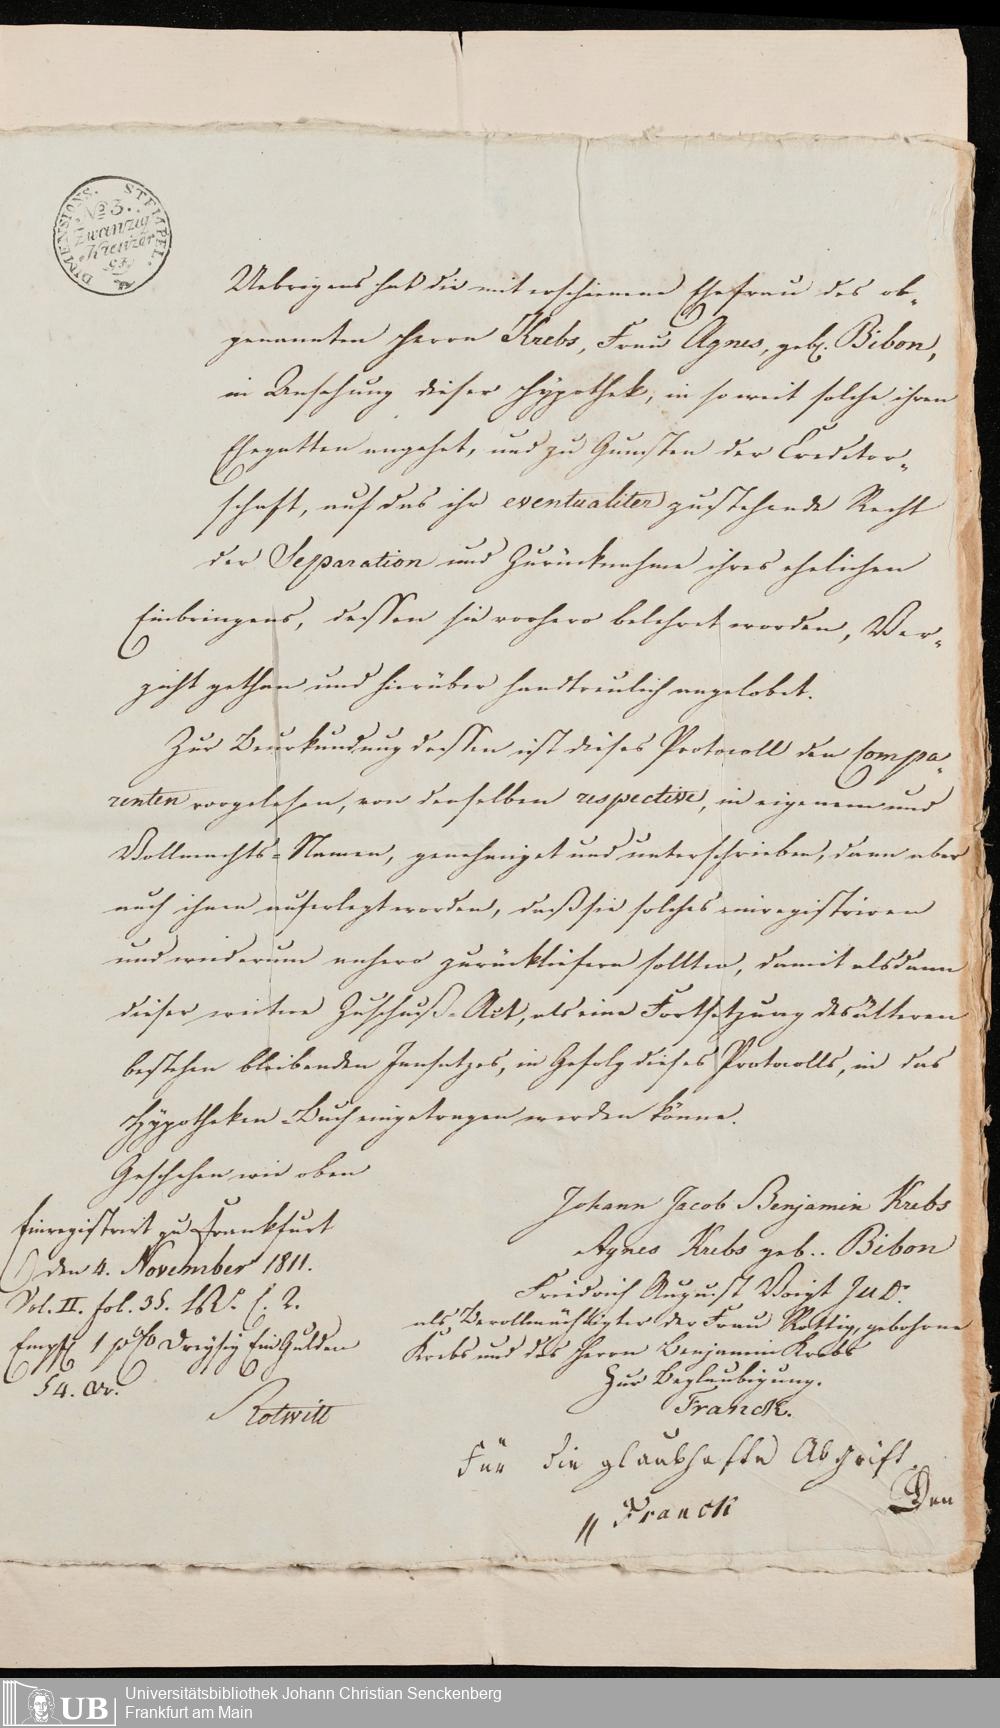 DIMENSIONS. STEMPEL.
No 3.
Zwanzig
Kreuzer
Uebrigens hat die miterschienene Ehefrau des ob-
genannten Herrn Krebs, Frau Agnes, geb. Bibon,
in Ansehung dieser Hypothek, in so weit solche ihren
Ehegatten angehet, und zu Gunsten der Creditor-
schaft, auf das ihr eventualiter zustehende Recht
der Separation und Zurücknahme ihres ehelichen
Einbringens, dessen sie vorhero belehret worden, Ver-
zicht gethan und hierüber handtreulich angelobet.
Zur Beurkundung dessen ist dieses Protocoll den Compa-
renten vorgelesen, von denselben respective, in eigenem und
Vollmachts-Namen, genehmiget und unterschrieben, dann aber
auch ihnen auferlegt worden, daß sie solches einregistriren
und wiederum anhero zurückliefern sollten, damit alsdann
dieser weitere Zuschuß-Act, als eine Fortsetzung des älteren
bestehen bleibenden Insatzes, in Gefolg dieses Protocolls, in das
Hypotheken-Buch eingetragen werden könne.
Geschehen wie oben
Johann Jacob Benjamin Krebs
Agnes Krebs geb.. Bibon
Friedrich August Voigt JUD.
als Bevollmächtigter der Frau Rottig, gebohrne
Krebs und des Herrn Benjamin Krebs
Zur Beglaubigung.
Franck.
Einregistrirt zu Frankfurt
den 4. November 1811.
Vol. II. fol. 35. C. 2.
Empf. 1 p% Dreysig Ein Gulden
54. xr.
Rotwitt
Für die glaubhafte Abschrift
Franck
Den
UB
Universitätsbibliothek Johann Christian Senckenberg
Frankfurt am Main